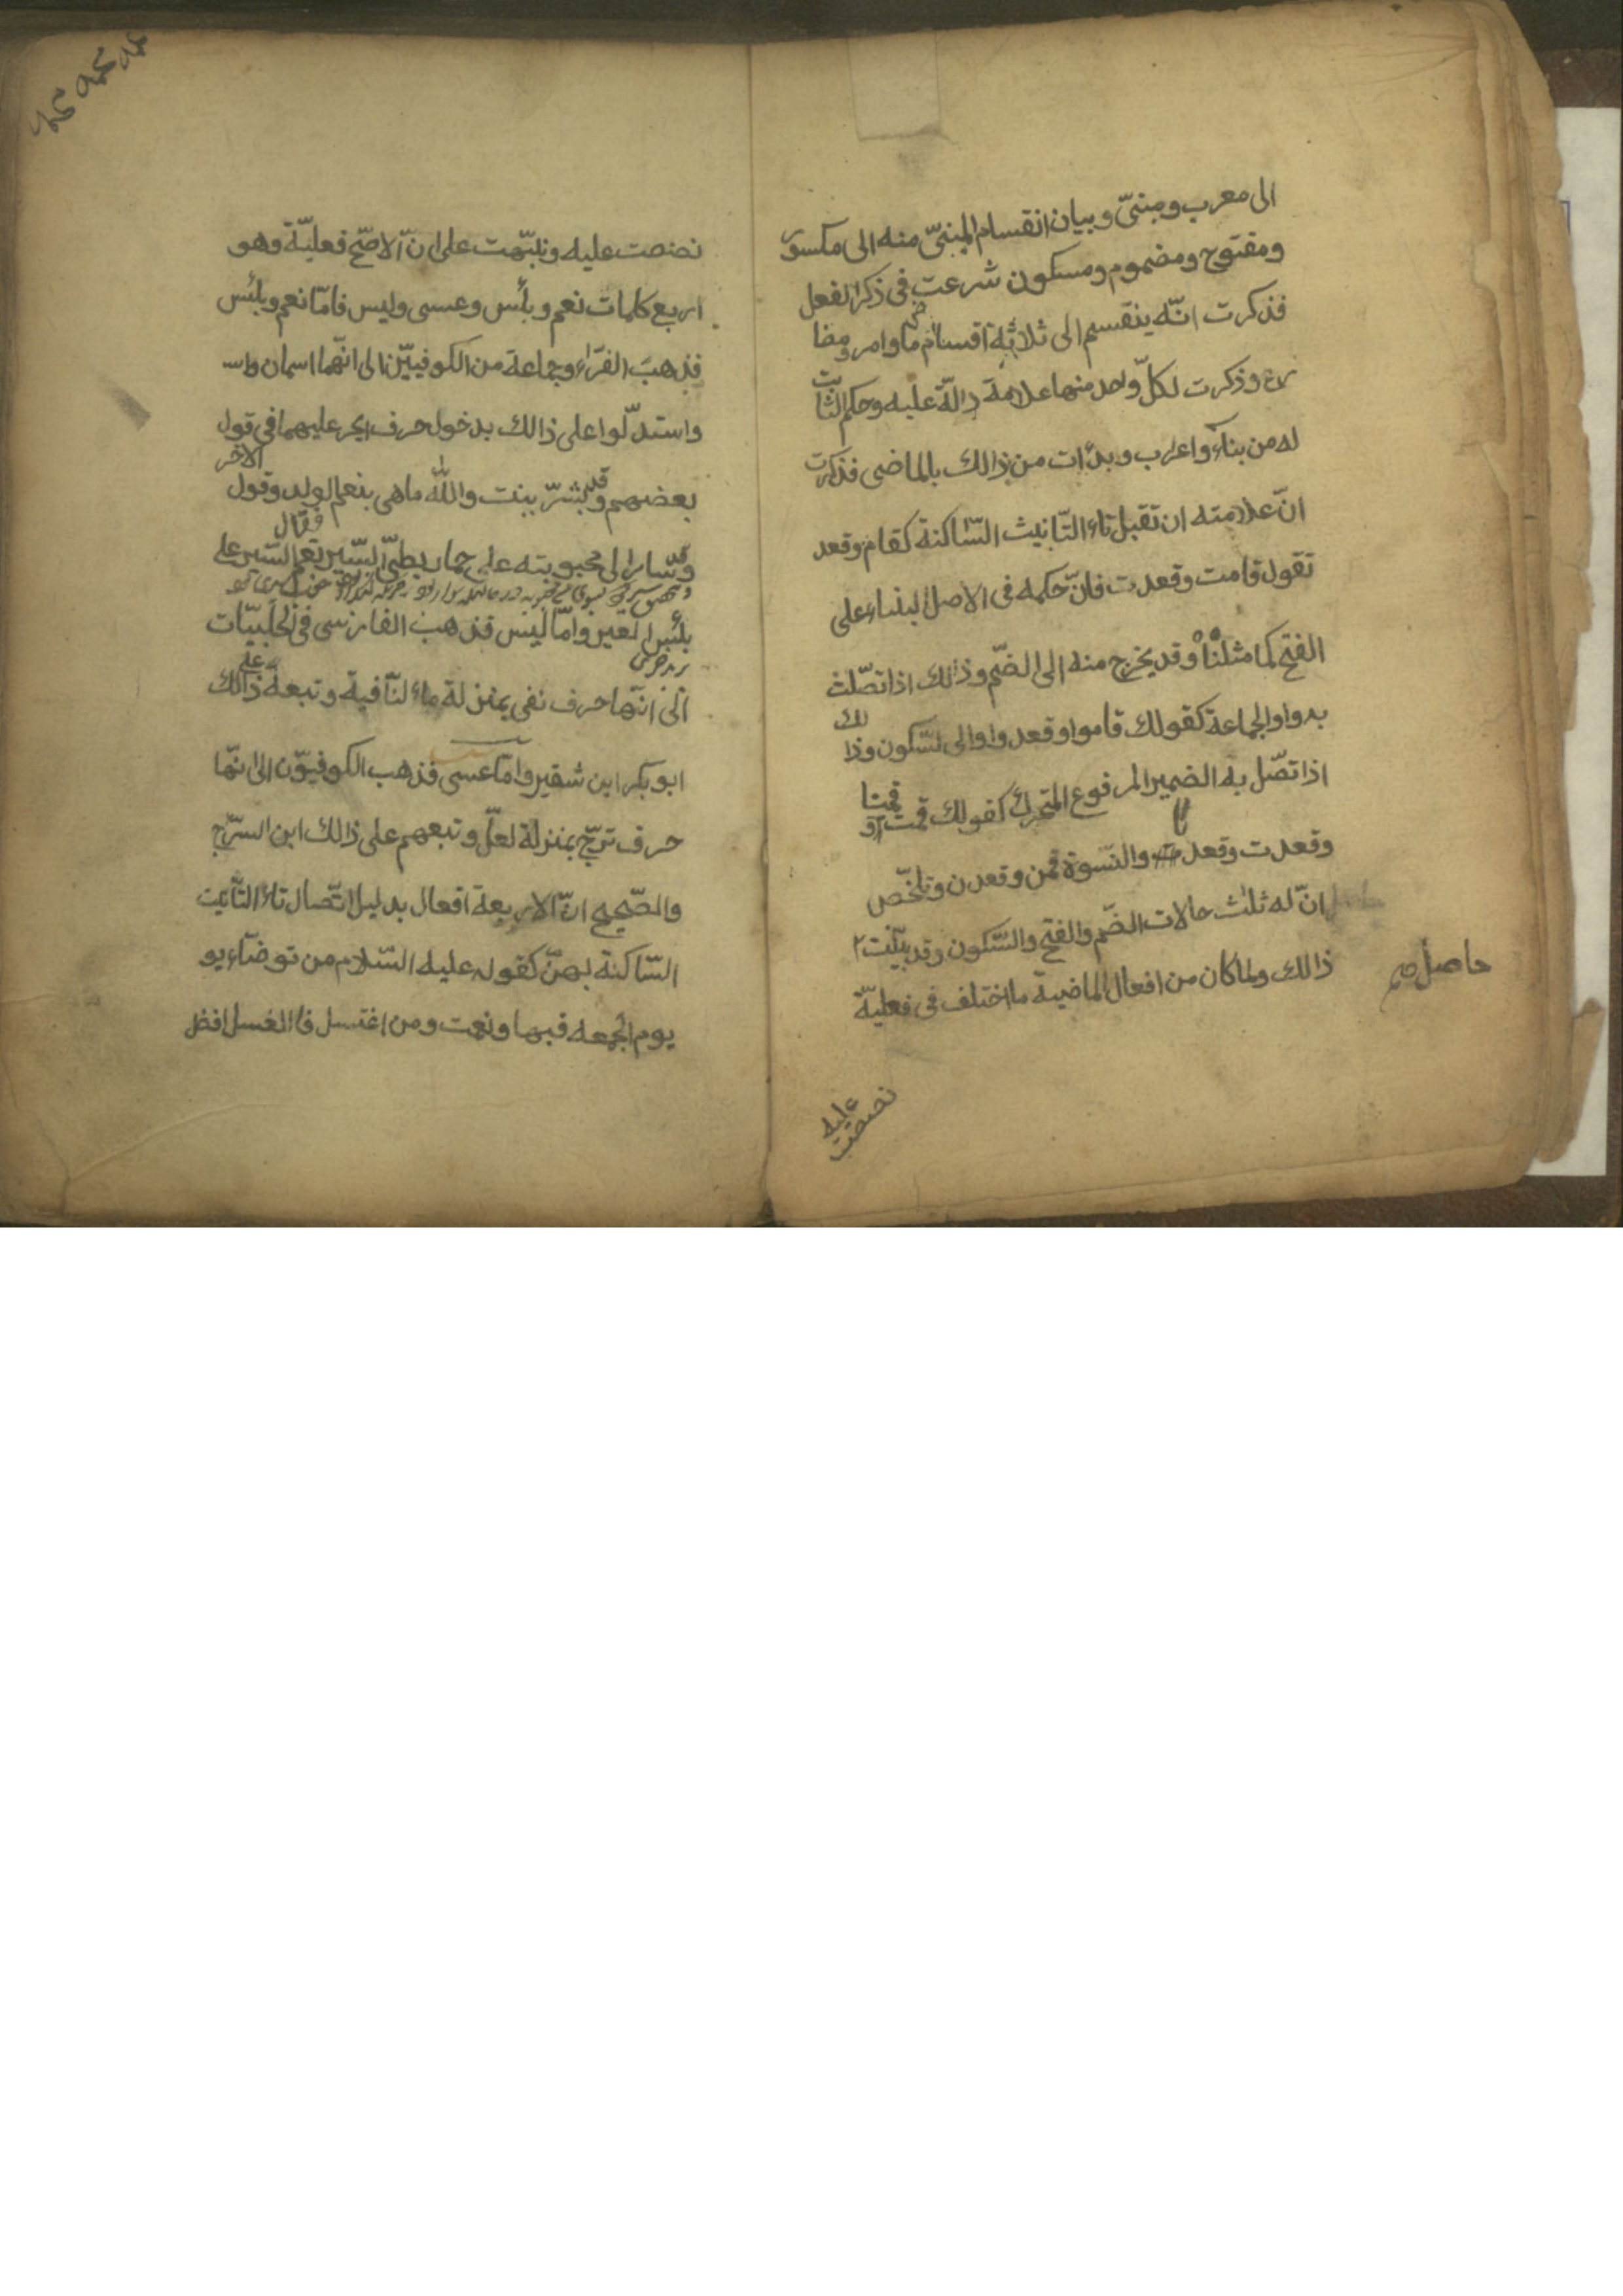 الى معرب ومبنىّ وبيان انقسام المبنىّ منه الى مكسور
ومفتوح ومضموم ومسكون شرعت فى ذكر الفعل
فذكرت انّه ينقسم الى ثلاثة اقسام ماض وامر ومضا
رع وذكرت لكلّ واحد منها علامة دالّة عليه وحكم الثابت
له من بناء واعراب وبدأت من ذالك بالماضى فذكرت
انّ علامته ان تقبل تاء التّانيث السّاكنة كقام وقعد
تقول قامت وقعدت فانّ حكمه فى الاصل البناء على
الفتح كما مثلنا وقد يخرج منه الى الضّم وذالك اذا تصّلت
به واو الجماعة كقولك قاموا وقعدوا والى السّكون وذالك
اذا تصّل به الضمير المرفوع المتحرك كقولك قمت وقمنا
وقعدت وقعدنا والنّسوة قمن وقعدن وتلخّص
انّ له ثلث حالات الضّم والفتح والسّكون وقد بيّنت
ذالك ولما كان من افعال الماضية ما اختلف فى فعليّة
حاصل
نصصت عليه
نصصت عليه ونبّهت على انّ الاصّح فعليّة وهو
اربع كلمات نعم وبئس وعسى وليس فامّا نعم وبئس
فذهب الفرّاء وجماعة من الكوفيّين الى انّهما اسمان واسـ
واستدلّوا على ذالك بدخول حرف الجر عليهما فى قول
بعضهم وقد بشرّ ببنت والله ما هى بنعم الولد وقول الاخر
وقد سار الى محبوبته على حمار بطئ السّير فقال نعم السّير على
بئس العير وامّا ليس فذهب الفارسى فى الحلبيّات
الى انّها حرف نفى بمنزلة ماء النّافية وتبعه على ذالك
ابو بكر ابن شقير وامّا عسى فذهب الكوفيّون الى انّها
حرف ترجّ بمنزلة لعلّ وتبعهم على ذالك ابن السرّاج
والصّحيح انّ الاربعة افعال بدليل اتّصال تاء التّأنيث
السّاكنة بهنّ كقوله عليه السّلام من توضاء يو
يوم الجمعه فبها ونعمت ومن اغتسل فاالغسل افضل